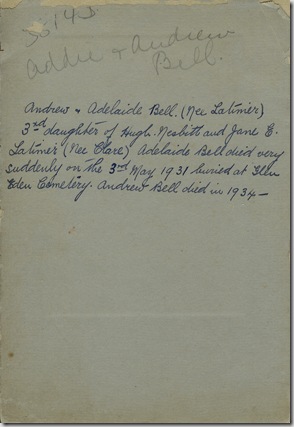 36143
Addie & Andrew
Bell.
Andrew & Adelaide Bell. (Nee Latimer)
3rd daughter of Hugh. Nesbitt and Jane E.
Latimer (Nee Clare) Adelaide Bell died very
suddenly on the 3rd May 1931 buried at Glen
Eden Cemetery. Andrew Bell died in 1934 -